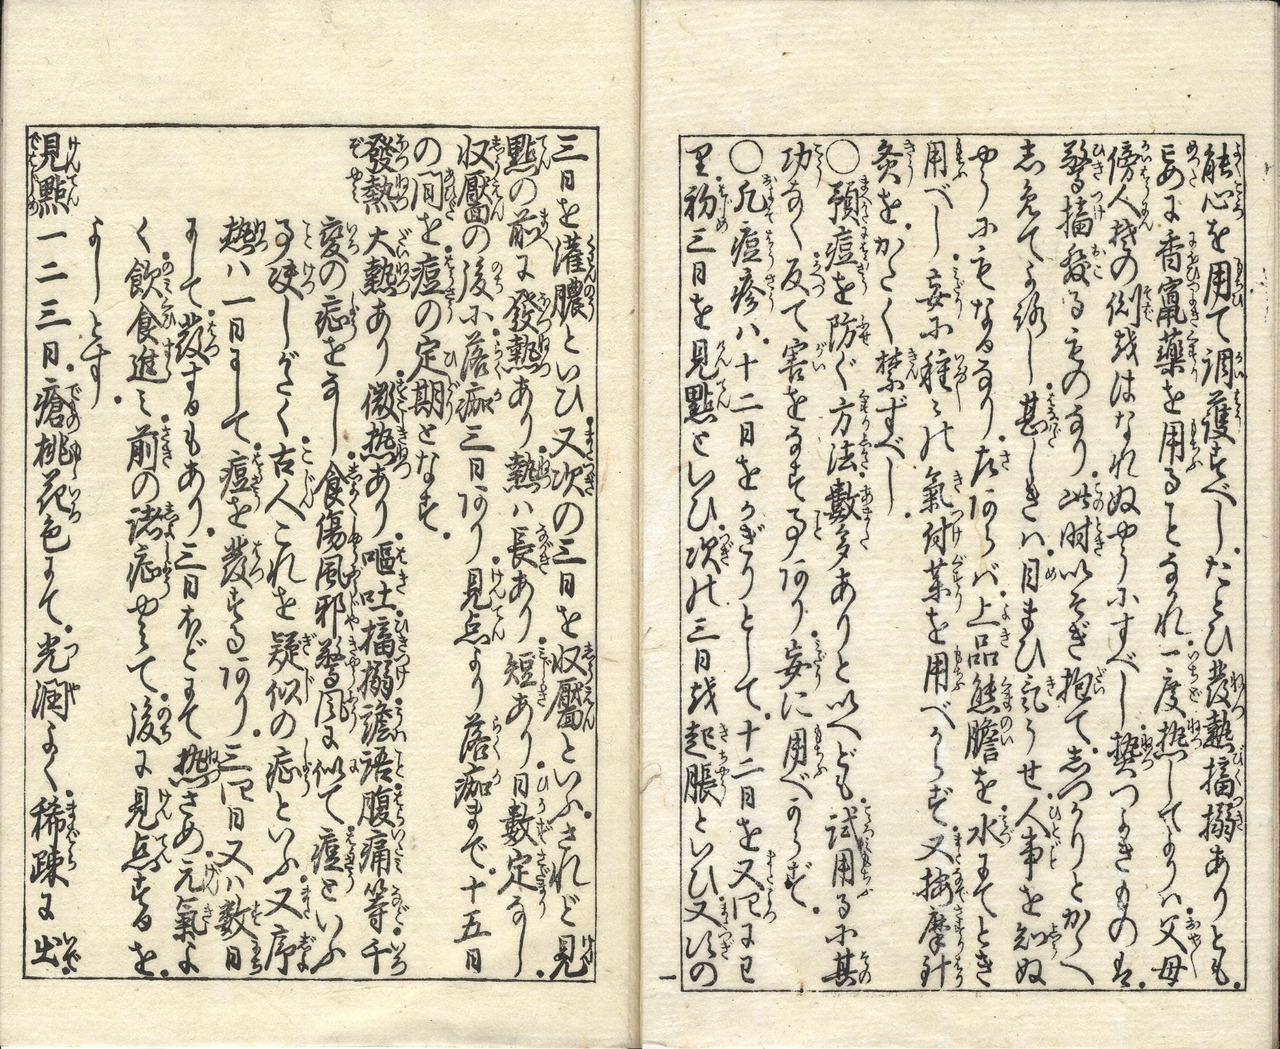 能心を用て調護すべしたとひ發熱搐搦ありとも
こめに香竄藥を用ることなかれ一度熱してより父母
傍人其の側をはなれぬやうにすべし熱つよきものは
驚搐發るものなり此時いそぎ抱てしつかりとかゝへ
しめてよろし甚しきハ目まひ氣うせ人事を知ぬ
やうにもなるなり左あらバ上品熊膽を水にてとき
用べし妄に種々の氣付薬を用べからず又按摩針
灸をかたく禁ずべし
〇預痘を防ぐ方法數多ありといへども試用るに其
功なく反て害をなする事あり妄に用べからず
〇凡痘疹ハ十二日をかぎりとして十二日を又四にわ
り初三日を見點といひ次の三日を起脹といひ又次の
一
三日を灌膿といひ又次の三日を収靨といふされど見
點の前に發熱あり熱ハ長あり短あり日數定なし
収靨の後に落痂三日あり見点より落痂まで十五日
の間を痘の定期となす
發熱 大熱あり微热あり嘔吐搐搦譫語腹痛等千
變の症をなし食傷風邪驚風に似て痘といふ
事决しがたく古人これを疑似の症といふ又序
熱ハ一日にして痘を發する有り三四日又ハ數日
にして發するもあり三日ほどにて热さめ元氣よ
く飲食進ミ前の諸症やミて後に見点するを
よしとす
見點 一二三日瘡桃花色にて光潤よく稀疎に出